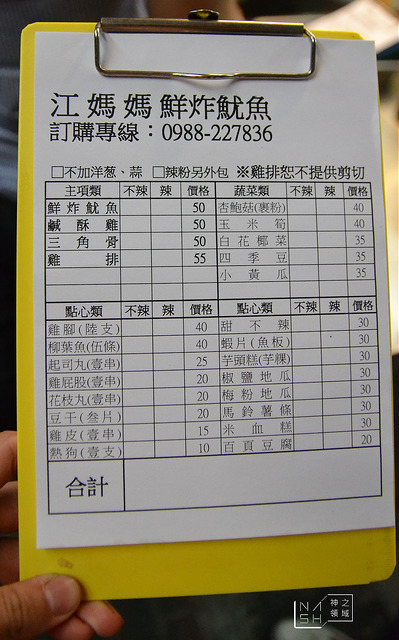 江媽媽鮮炸魷魚
訂購專線：0988-227836
□不加洋蔥、蒜 □辣粉另外包 ※雞排恕不提供剪切
主項類 不辣 辣 價格 蔬菜類 不辣 辣 價格
鮮炸魷魚 50 杏鮑菇(裹粉) 40
鹹酥雞 50 玉米筍 40
三角骨 50 白花椰菜 35
雞排 55 四季豆 35
小黃瓜 35
點心類 不辣 辣 價格 點心類 不辣 辣 價格
雞腳(陸支) 40 甜不辣 30
柳葉魚(伍條) 40 蝦片(魚板) 30
起司丸(壹串) 25 芋頭糕(芋粿) 30
雞屁股(壹串) 20 椒鹽地瓜 30
花枝丸(壹串) 20 梅粉地瓜 30
豆干(叁片) 20 馬鈴薯條 30
雞皮(壹串) 15 米血糕 30
熱狗(壹支) 10 百頁豆腐 20
合計
NASH 神之領域